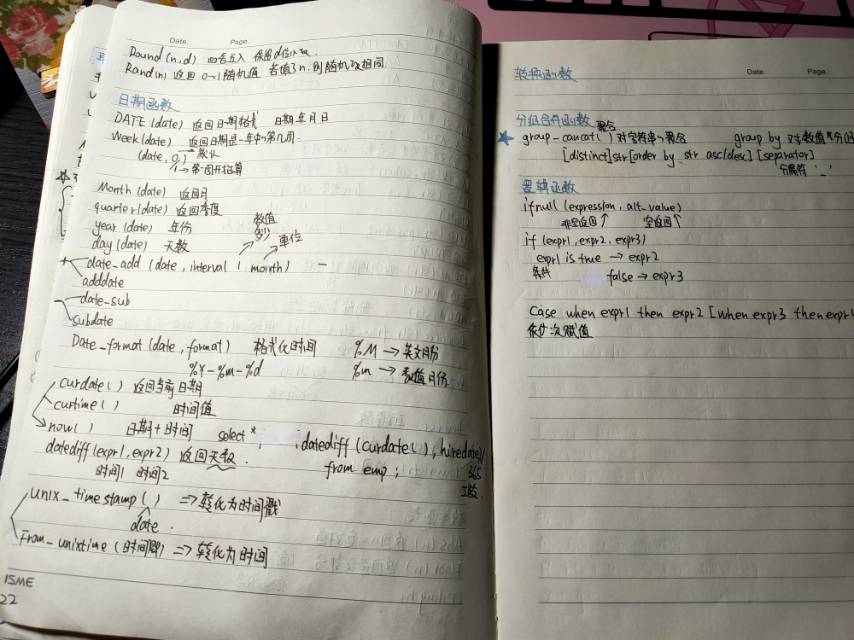 Date.   Page.
Round(n,d) 四舍五入 保留d位小数.
Rand(n) 返回 0~1随机值 若填了n,则随机改相同
日期函数
DATE(date) 返回日期格式 日期 年月日
Week(date) 返回日期是一年中的第几周.
(date, 0) 默认
1 → 第一周开始算
Month(date) 返回月
quarter(date) 返回季度
year(date) 年份
数值
day(date) 天数
多少 单位
+ date_add (date, interval 1 month) -
adddate
- date-sub
subdate
Date_format(date, format) 格式化时间 %M → 英文月份
%Y-%m-%d %m → 数值月份
curdate() 返回当前日期
curtime() 时间值
now() 日期+时间 select *, datediff(curdate(), hiredate)/
365
datediff(expr1, expr2) 返回天数. from emp;
时间1 时间2
工龄
unix_timestamp() => 转化为时间戳
date.
From_unixtime(时间戳) => 转化为时间
ISME
22
Date:   Page:
转换函数
分组合并函数 聚合
★ group_concat() 对字符串的聚合 group by 对数值
[distinct]str[order by str asc/desc] [separator]
分隔符 '_'
逻辑函数
ifnull(expression, alt_value)
非空返回↑ 空返回↑
if(expr1, expr2, expr3)
expr1 is true → expr2
条件
false → expr3
Case when expr1 then expr2 [when expr3 then expr4
依次赋值